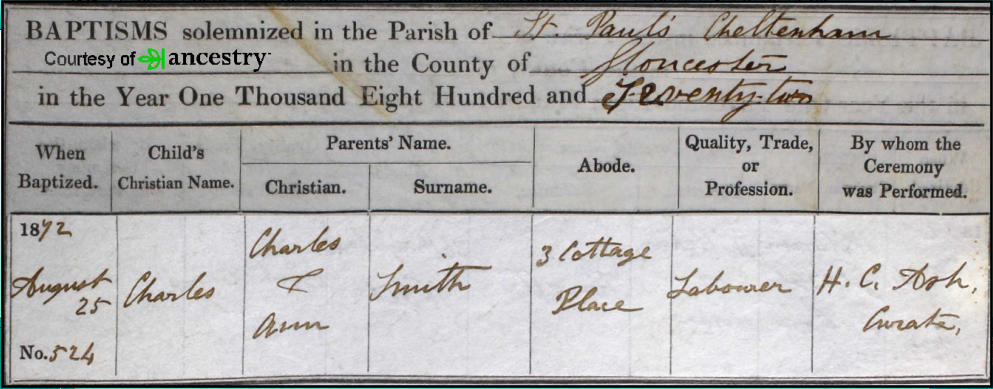 BAPTISMS solemnized in the Parish of St. Paul's Cheltenham
Courtesy of ancestry
in the County of Gloucester
in the Year One Thousand Eight Hundred and Seventy-two
When Baptized.
Child's Christian Name.
Parents' Name.
Christian.
Surname.
Abode.
Quality, Trade, or Profession.
By whom the Ceremony was Performed.
1872
August
25
No. 524
Charles
Charles
&
Ann
Smith
3 Cottage
Place
Labourer
H. C. Ash,
Curate,